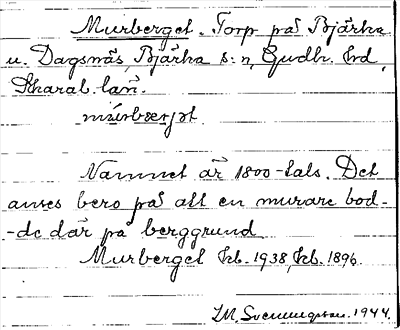 Murberget. Torp på Bjärka
u. Dagsnäs, Bjärka s:n, Gudh. hd,
Skarab. län.
mu̇rbærjət
Namnet är 1800-tals. Det
anses bero på att en murare bod-
-de där på berggrund
Murberget kb. 1938, kb. 1896.
Svenungsson. 1944.